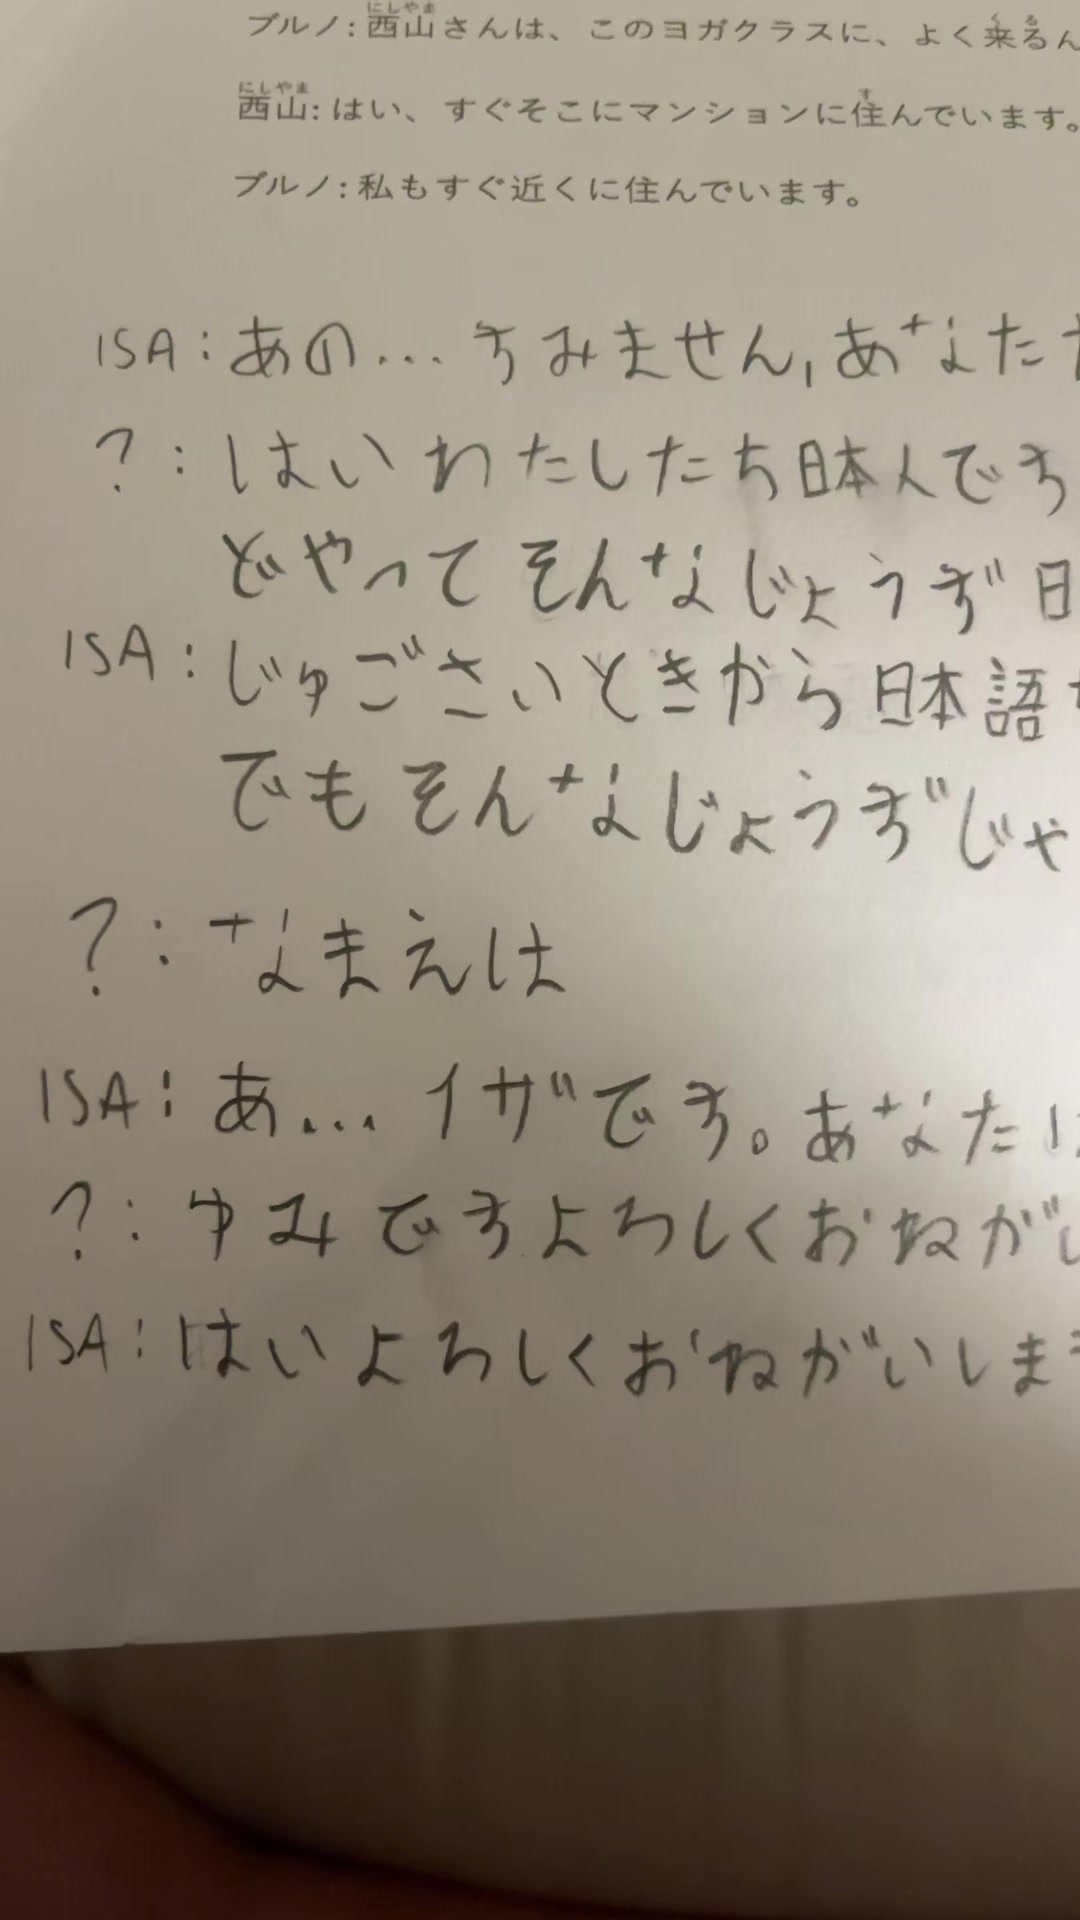 ブルノ: 西山さんは、このヨガクラスに、よく来るん
西山: はい、すぐそこにマンションに住んでいます。
ブルノ: 私もすぐ近くに住んでいます。
ISA: あの... すみません, あなた
?: はい わたしたち日本人です
どやって そんなじょうず 日
ISA: じゅごさいときから 日本語
でも そんなじょうずじゃ
?: なまえは
ISA: あ... イザです。あなたは
?: ゆみですよろしくおねがい
ISA: はいよろしくおねがいします